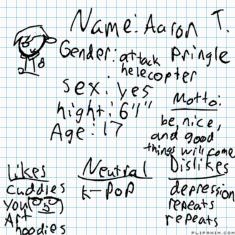 Name: Aaron T.
Gender: attack helecopter
Pringle
sex: yes
hight: 6'1"
Age: 17
Motto:
be nice,
and good
things will come
Likes
cuddies
you
Art
hoodies
Neutral
K-POP
Dislikes
depression
repeats
repeats
FLIPANIM.COM